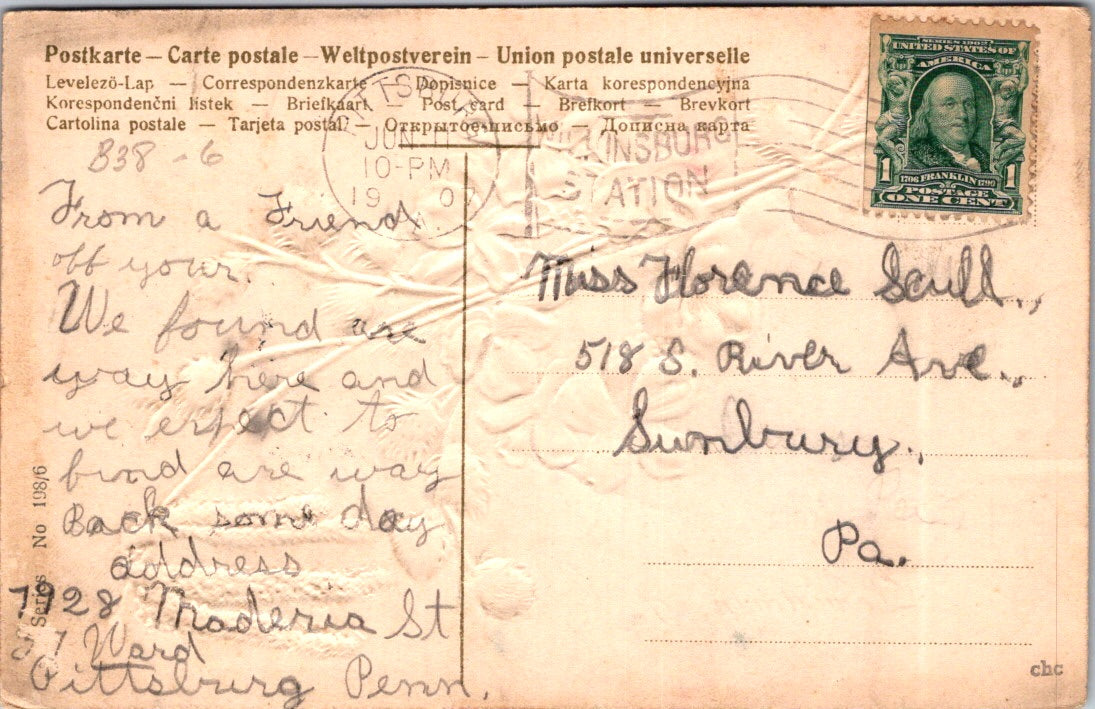 Postkarte – Carte postale – Weltpostverein – Union postale universelle
Levelezö-Lap — Correspondenzkarte — Dopisnice — Karta korespondencyjna
Korespondenční lístek — Briefkaart — Post card — Brefkort — Brevkort
Cartolina postale — Tarjeta postal — Открытое письмо — Дописна карта
B38 - 6
JUN 11
10-PM
19 07
WILKINSBURG
STATION
SERIES 1902
UNITED STATES OF
AMERICA
1 1706 FRANKLIN 1790 1
POSTAGE
ONE CENT
From a Friend
off your.
We found are
way here and
we expect to
find are way
Back some day
address
7928 Maderia St
Ward
Pittsburg Penn.
Miss Florence Scull.,
518 S. River Ave.,
Sunbury.,
Pa.
Series No 198/6
chc